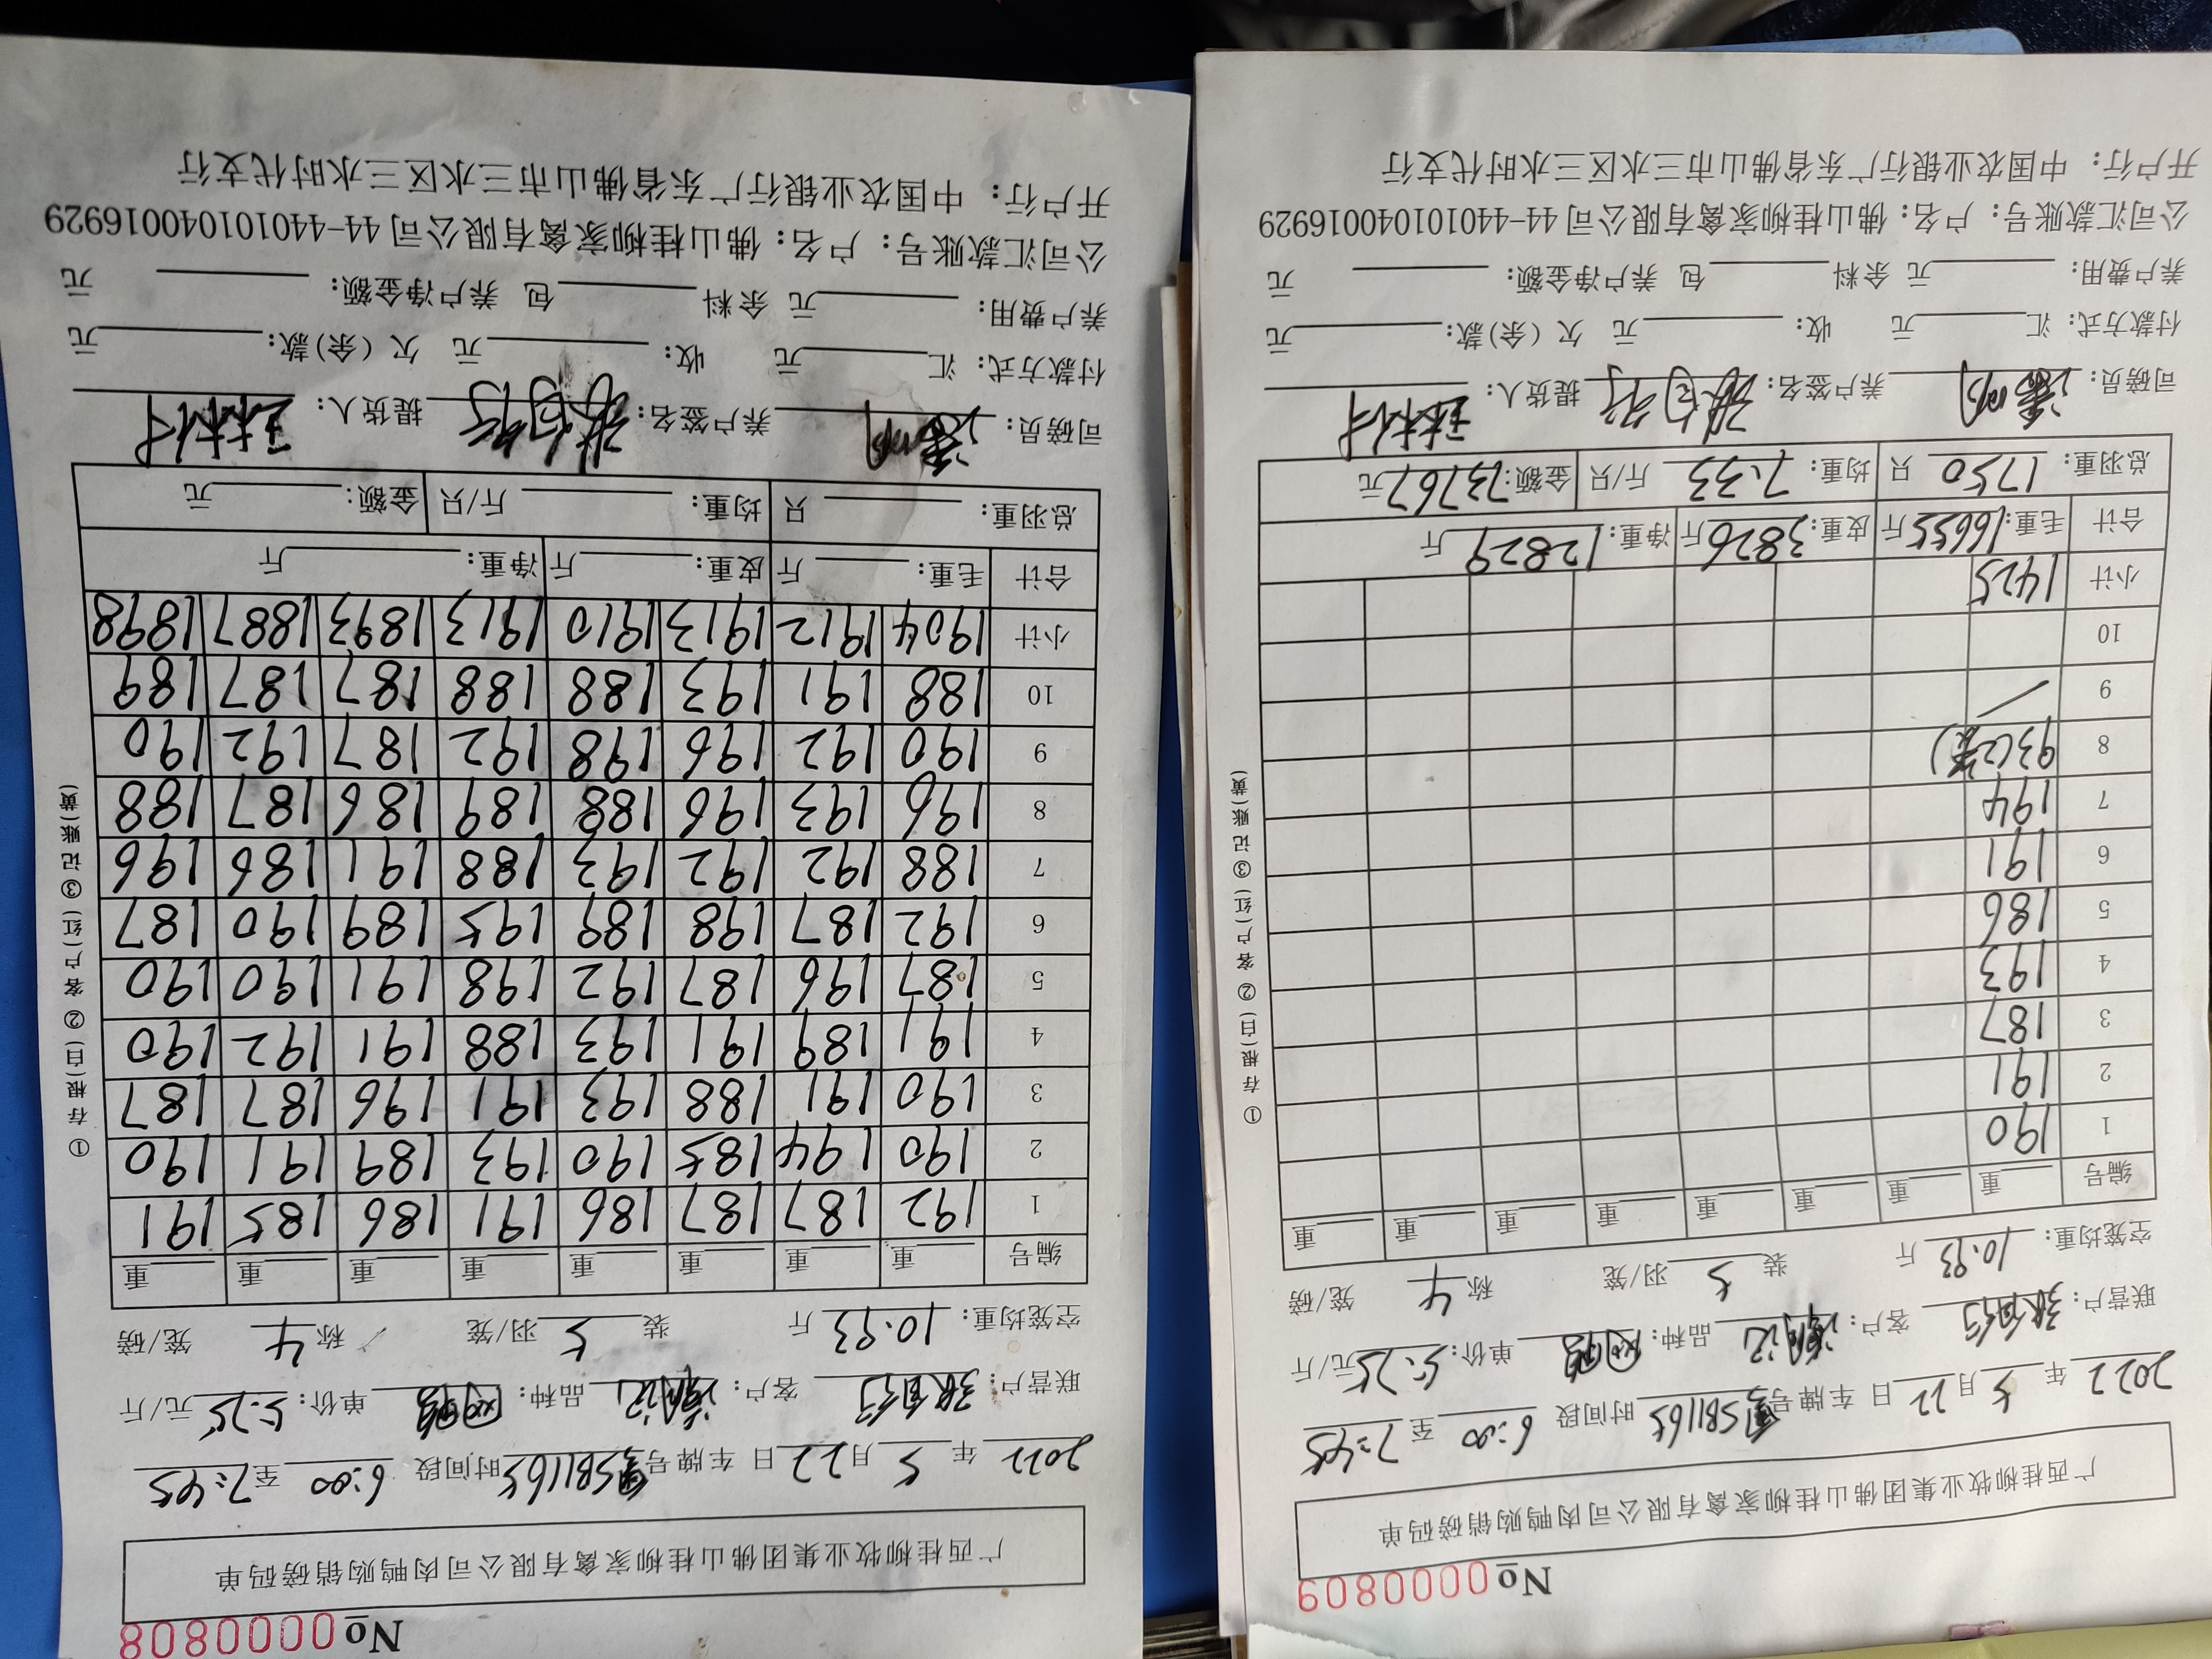 No 0000809
广西桂柳牧业集团佛山桂柳家禽有限公司肉鸭购销磅码单
2022 年 5 月 22 日 车牌号 SB1165 时间段 6:00 至 7:45
联营户: 客户: 品种: 单价: 5.25 元/斤
空笼均重: 10.93 斤 装 5 羽/笼 称 4 笼/磅
编号 重 重 重 重 重 重 重 重
1 190
2 191
3 187
4 193
5 186
6 191
7 194
8 93(2笼)
9
10
小计 1425
合计 毛重: 16655 斤 皮重: 3826 斤 净重: 12829 斤
总羽重: 1750 只 均重: 7.33 斤/只 金额: 73767 元
司磅员: 养户签名: 提货人:
付款方式: 汇 元 收: 元 欠(余)款: 元
养户费用: 元 余料 包 养户净金额: 元
公司汇款账号: 户名: 佛山桂柳家禽有限公司 44-440101040016929
开户行: 中国农业银行广东省佛山市三水区三水时代支行
① 存根(白) ② 客户(红) ③ 记账(黄)
No 0000808
广西桂柳牧业集团佛山桂柳家禽有限公司肉鸭购销磅码单
2022 年 5 月 22 日 车牌号 SB1165 时间段 6:00 至 7:45
联营户: 客户: 品种: 单价: 5.25 元/斤
空笼均重: 10.93 斤 装 5 羽/笼 称 4 笼/磅
编号 重 重 重 重 重 重 重 重
1 192 187 187 186 191 186 185 191
2 190 194 185 190 193 189 191 190
3 190 191 188 193 191 196 187 187
4 191 189 191 193 188 191 192 190
5 187 196 187 192 198 191 190 190
6 192 187 198 189 195 189 190 187
7 188 192 192 193 188 191 186 196
8 196 193 196 188 189 186 187 188
9 190 192 196 198 192 187 192 190
10 188 191 193 188 188 187 187 189
小计 1904 1912 1913 1910 1913 1893 1887 1898
合计 毛重: 斤 皮重: 斤 净重: 斤
总羽重: 只 均重: 斤/只 金额: 元
司磅员: 养户签名: 提货人:
付款方式: 汇 元 收: 元 欠(余)款: 元
养户费用: 元 余料 包 养户净金额: 元
公司汇款账号: 户名: 佛山桂柳家禽有限公司 44-440101040016929
开户行: 中国农业银行广东省佛山市三水区三水时代支行
① 存根(白) ② 客户(红) ③ 记账(黄)